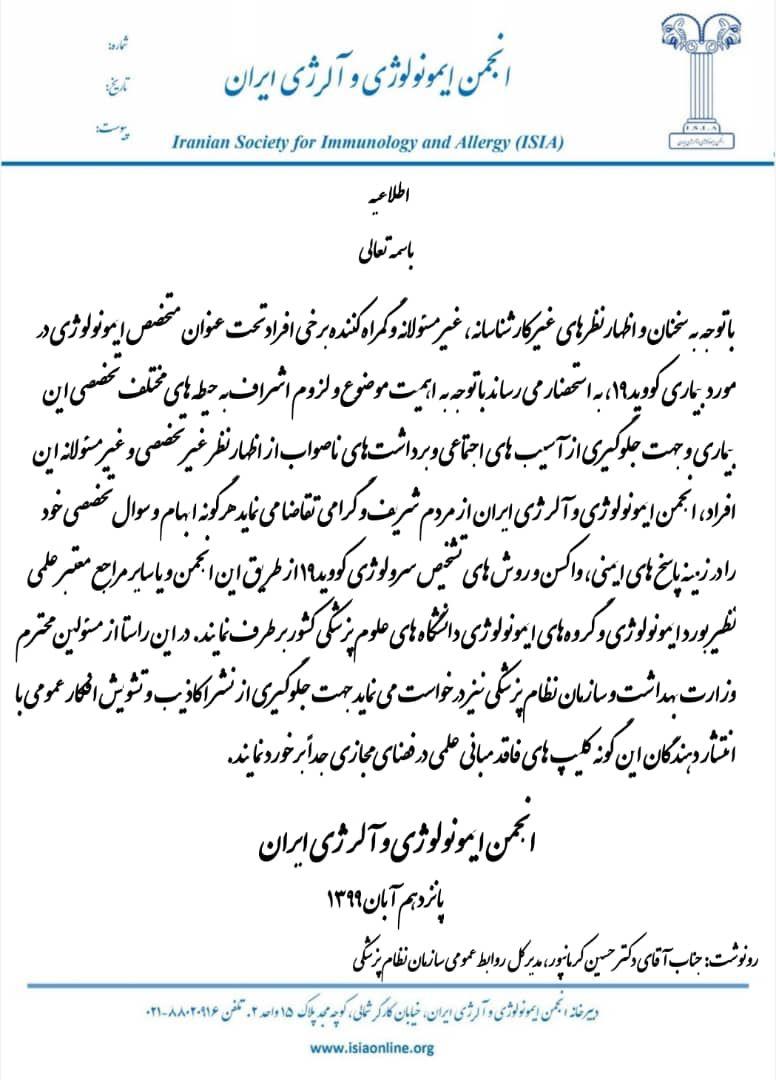 شماره:
تاریخ:
پیوست:
انجمن ایمونولوژی و آلرژی ایران
Iranian Society for Immunology and Allergy (ISIA)
I S I A
اطلاعیه
باسمه تعالی
باتوجه به سخنان و اظهار نظرهای غیرکارشناسانه، غیرمسئولانه و گمراه کننده برخی افراد تحت عنوان متخصص ایمونولوژی در
مورد بیماری کووید۱۹، به استحضار می رساند باتوجه به اهمیت موضوع و لزوم اشراف به حیطه های مختلف تخصصی این
بیماری و جهت جلوگیری از آسیب های اجتماعی و برداشت های ناصواب از اظهار نظر غیر تخصصی و غیر مسئولانه این
افراد، انجمن ایمونولوژی و آلرژی ایران از مردم شریف و گرامی تقاضا می نماید هرگونه ابهام و سوال تخصصی خود
را در زمینه پاسخ های ایمنی، واکسن و روش های تشخیص سرولوژی کووید۱۹ از طریق این انجمن و یا سایر مراجع معتبر علمی
نظیر بورد ایمونولوژی و گروه های ایمونولوژی دانشگاه های علوم پزشکی کشور برطرف نمایند. در این راستا از مسئولین محترم
وزارت بهداشت و سازمان نظام پزشکی نیز درخواست می نماید جهت جلوگیری از نشر اکاذیب و تشویش افکار عمومی با
انتشار دهندگان این گونه کلیپ های فاقد مبانی علمی در فضای مجازی جداً برخورد نمایند.
انجمن ایمونولوژی و آلرژی ایران
پانزدهم آبان ۱۳۹۹
رونوشت: جناب آقای دکتر حسین کرمانپور، مدیر کل روابط عمومی سازمان نظام پزشکی
دبیرخانه انجمن ایمونولوژی و آلرژی ایران، خیابان کارگر شمالی، کوچه مجد پلاک ۱۵ واحد ۲. تلفن ۸۸۰۲۰۹۱۶-۰۲۱
www.isiaonline.org